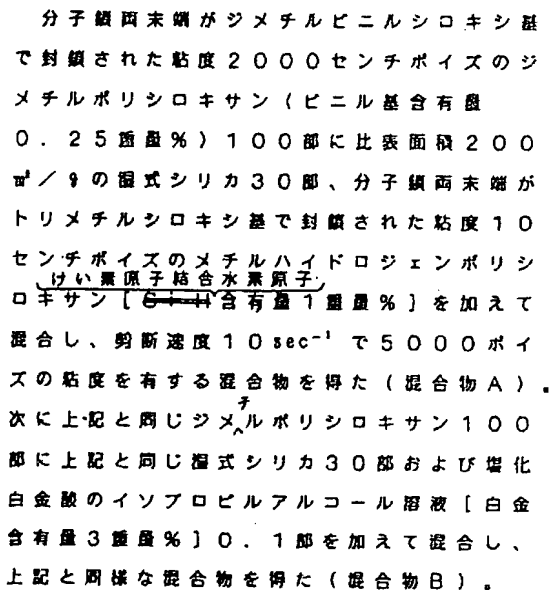 分子鎖両末端がジメチルビニルシロキシ基
で封鎖された粘度2000センチポイズのジ
メチルポリシロキサン(ビニル基含有量
0.25重量%)100部に比表面積200
m²/gの湿式シリカ30部、分子鎖両末端が
トリメチルシロキシ基で封鎖された粘度10
センチポイズのメチルハイドロジェンポリシ
けい素原子結合水素原子
ロキサン[含有量1重量%]を加えて
混合し、剪断速度10sec⁻¹で5000ポイ
ズの粘度を有する混合物を得た(混合物A)。
次に上記と同じジメチルポリシロキサン100
部に上記と同じ湿式シリカ30部および塩化
白金酸のイソプロピルアルコール溶液[白金
含有量3重量%]0.1部を加えて混合し、
上記と同様な混合物を得た(混合物B)。